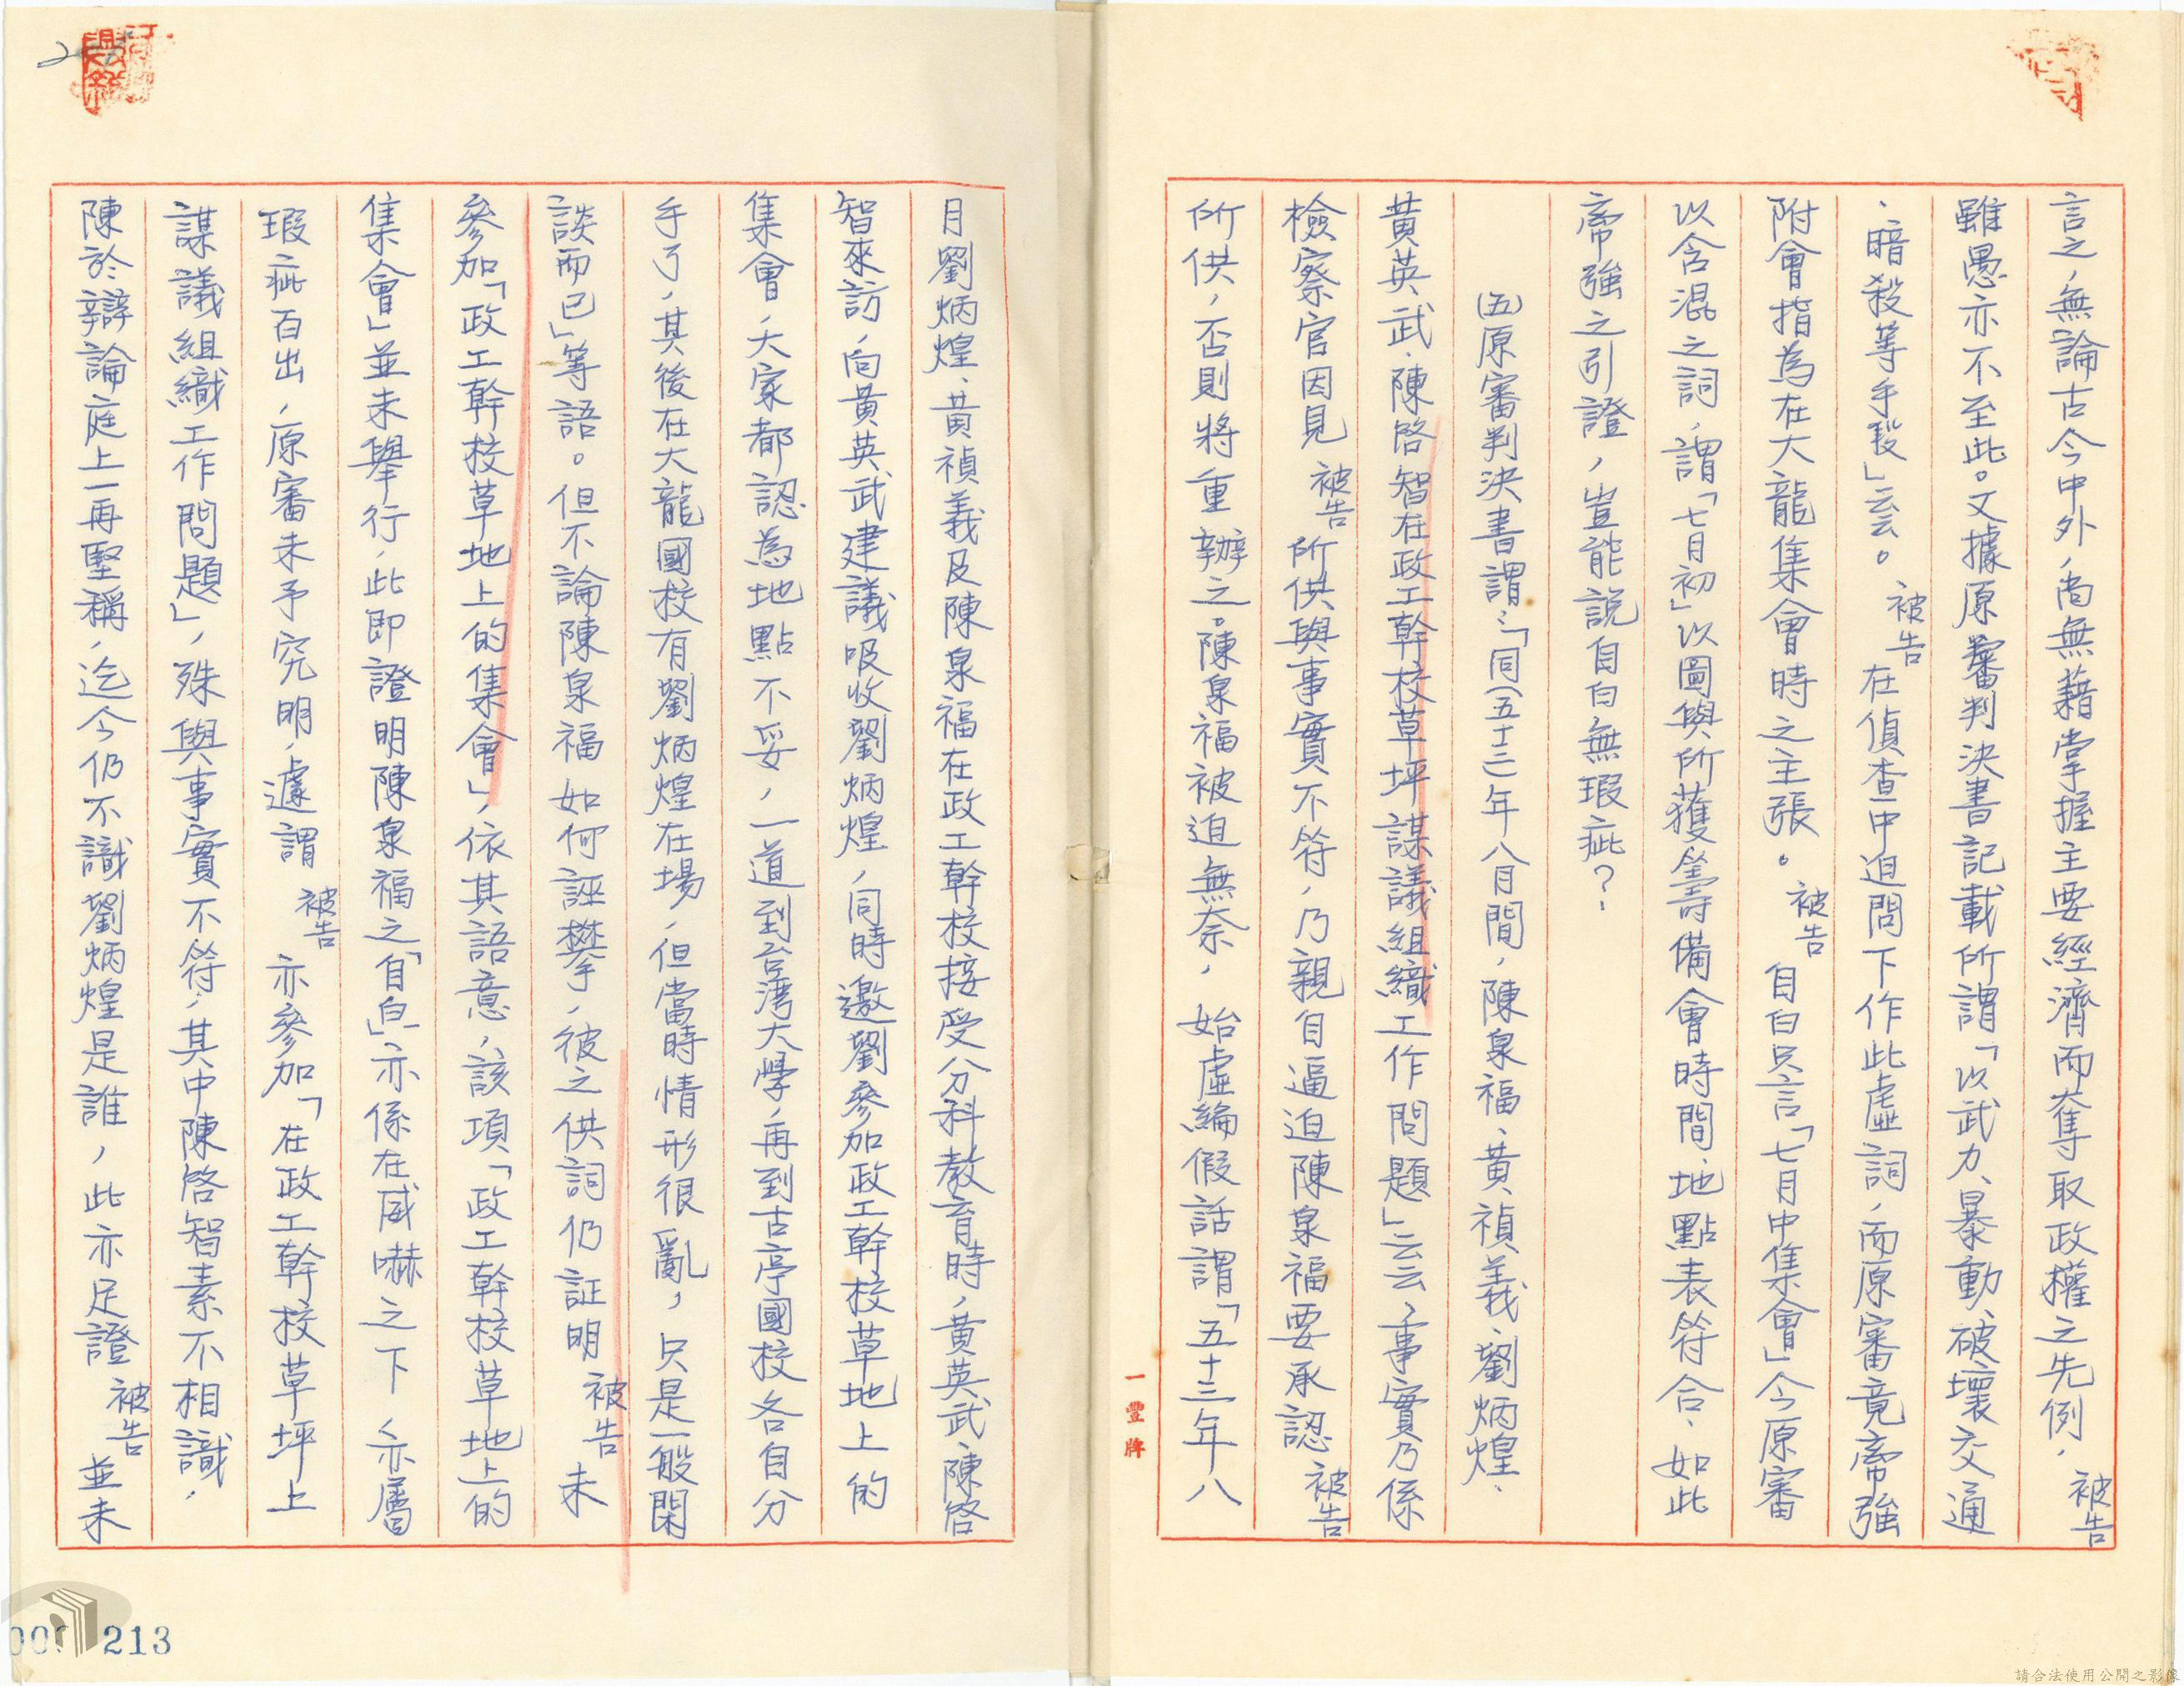 言之，無論古今中外，尚無藉掌握主要經濟而奪取政權之先例，被告
雖愚亦不至此。又據原審判決書記載所謂「以武力、暴動、破壞交通
、暗殺等手段」云云。被告在偵查中迫問下作此虛詞，而原審竟牽強
附會指為在大龍集會時之主張。被告自白只言「七月中集會」今原審
以含混之詞，謂「七月初」以圖與所獲籌備會時間、地點表符合、如此
牽強之引證，豈能說自白無瑕疵？
㈤原審判決書謂：「同(五十三)年八月間，陳泉福、黃禎義、劉炳煌、
黃英武、陳啓智在政工幹校草坪謀議組織工作問題」云云，事實乃係
檢察官因見被告所供與事實不符，乃親自逼迫陳泉福要承認被告
所供，否則將重辦之。陳泉福被迫無奈，始虛編假話謂「五十三年八
月劉炳煌、黃禎義及陳泉福在政工幹校接受分科教育時，黃英武、陳啓
智來訪，向黃英武建議吸收劉炳煌，同時邀劉參加政工幹校草地上的
集會，大家都認為地點不妥，一道到台灣大學，再到古亭國校各自分
手了，其後在大龍國校有劉炳煌在場，但當時情形很亂，只是一般閑
談而已」等語。但不論陳泉福如何誣攀，彼之供詞仍証明被告未
參加「政工幹校草地上的集會」，依其語意，該項「政工幹校草地上的
集會」並未舉行，此即證明陳泉福之「自白」亦係在威嚇之下，亦屬
瑕疵百出，原審未予究明，遽謂被告亦參加「在政工幹校草坪上
謀議組織工作問題」，殊與事實不符，其中陳啓智素不相識，
陳於辯論庭上一再堅稱，迄今仍不識劉炳煌是誰，此亦足證被告並未
一豐牌
213
請合法使用公開之影像